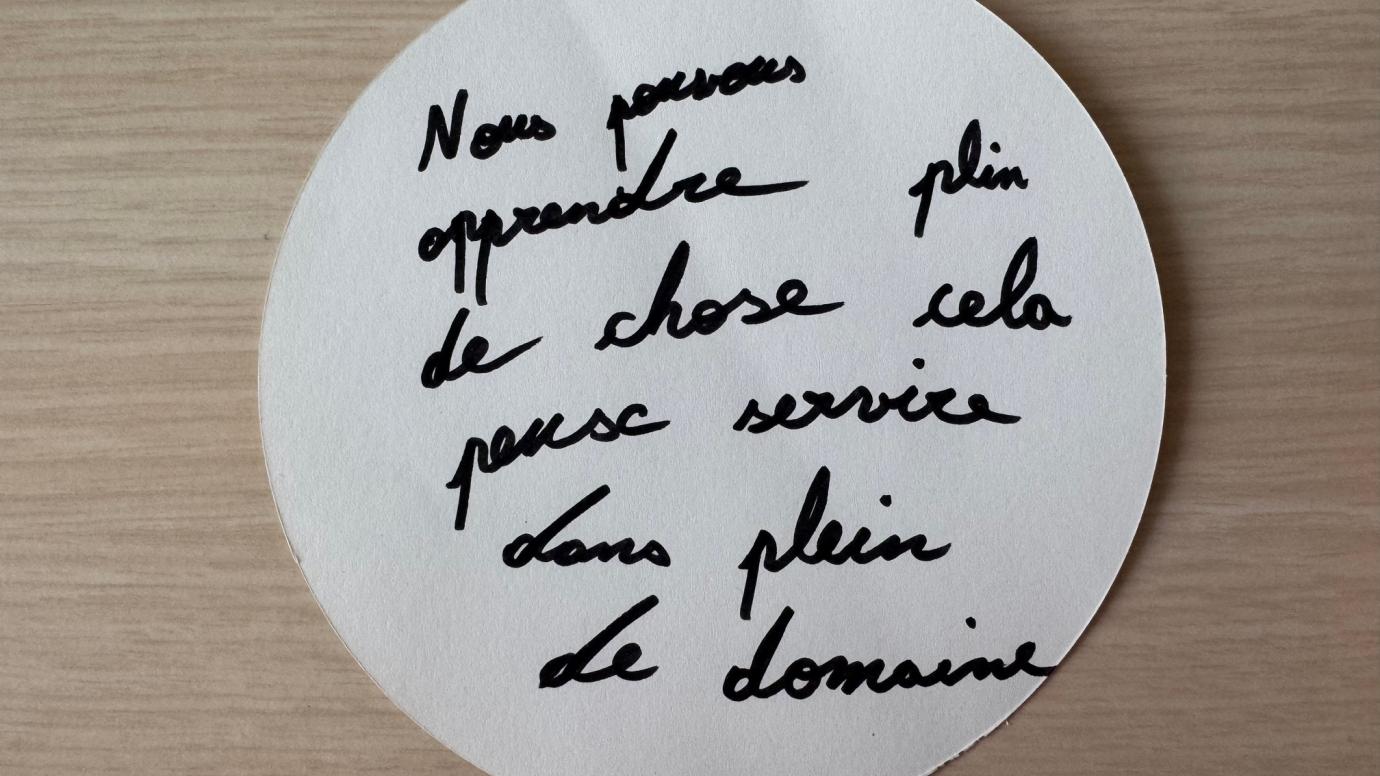 Nous pouvons
apprendre plin
de chose cela
peuse servire
dans plein
de domaine